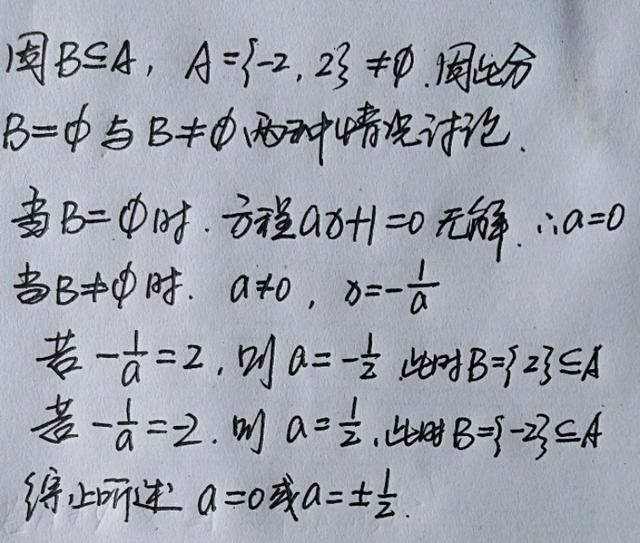 因B⊆A, A={-2, 2}≠∅. 因此分
B=∅与B≠∅两种情况讨论.
当B=∅时. 方程ax+1=0无解. ∴a=0
当B≠∅时. a≠0, x=-1/a
若 -1/a=2, 则 a=-1/2 此时B={2}⊆A
若 -1/a=-2. 则 a=1/2, 此时B={-2}⊆A
综上所述 a=0或a=±1/2.